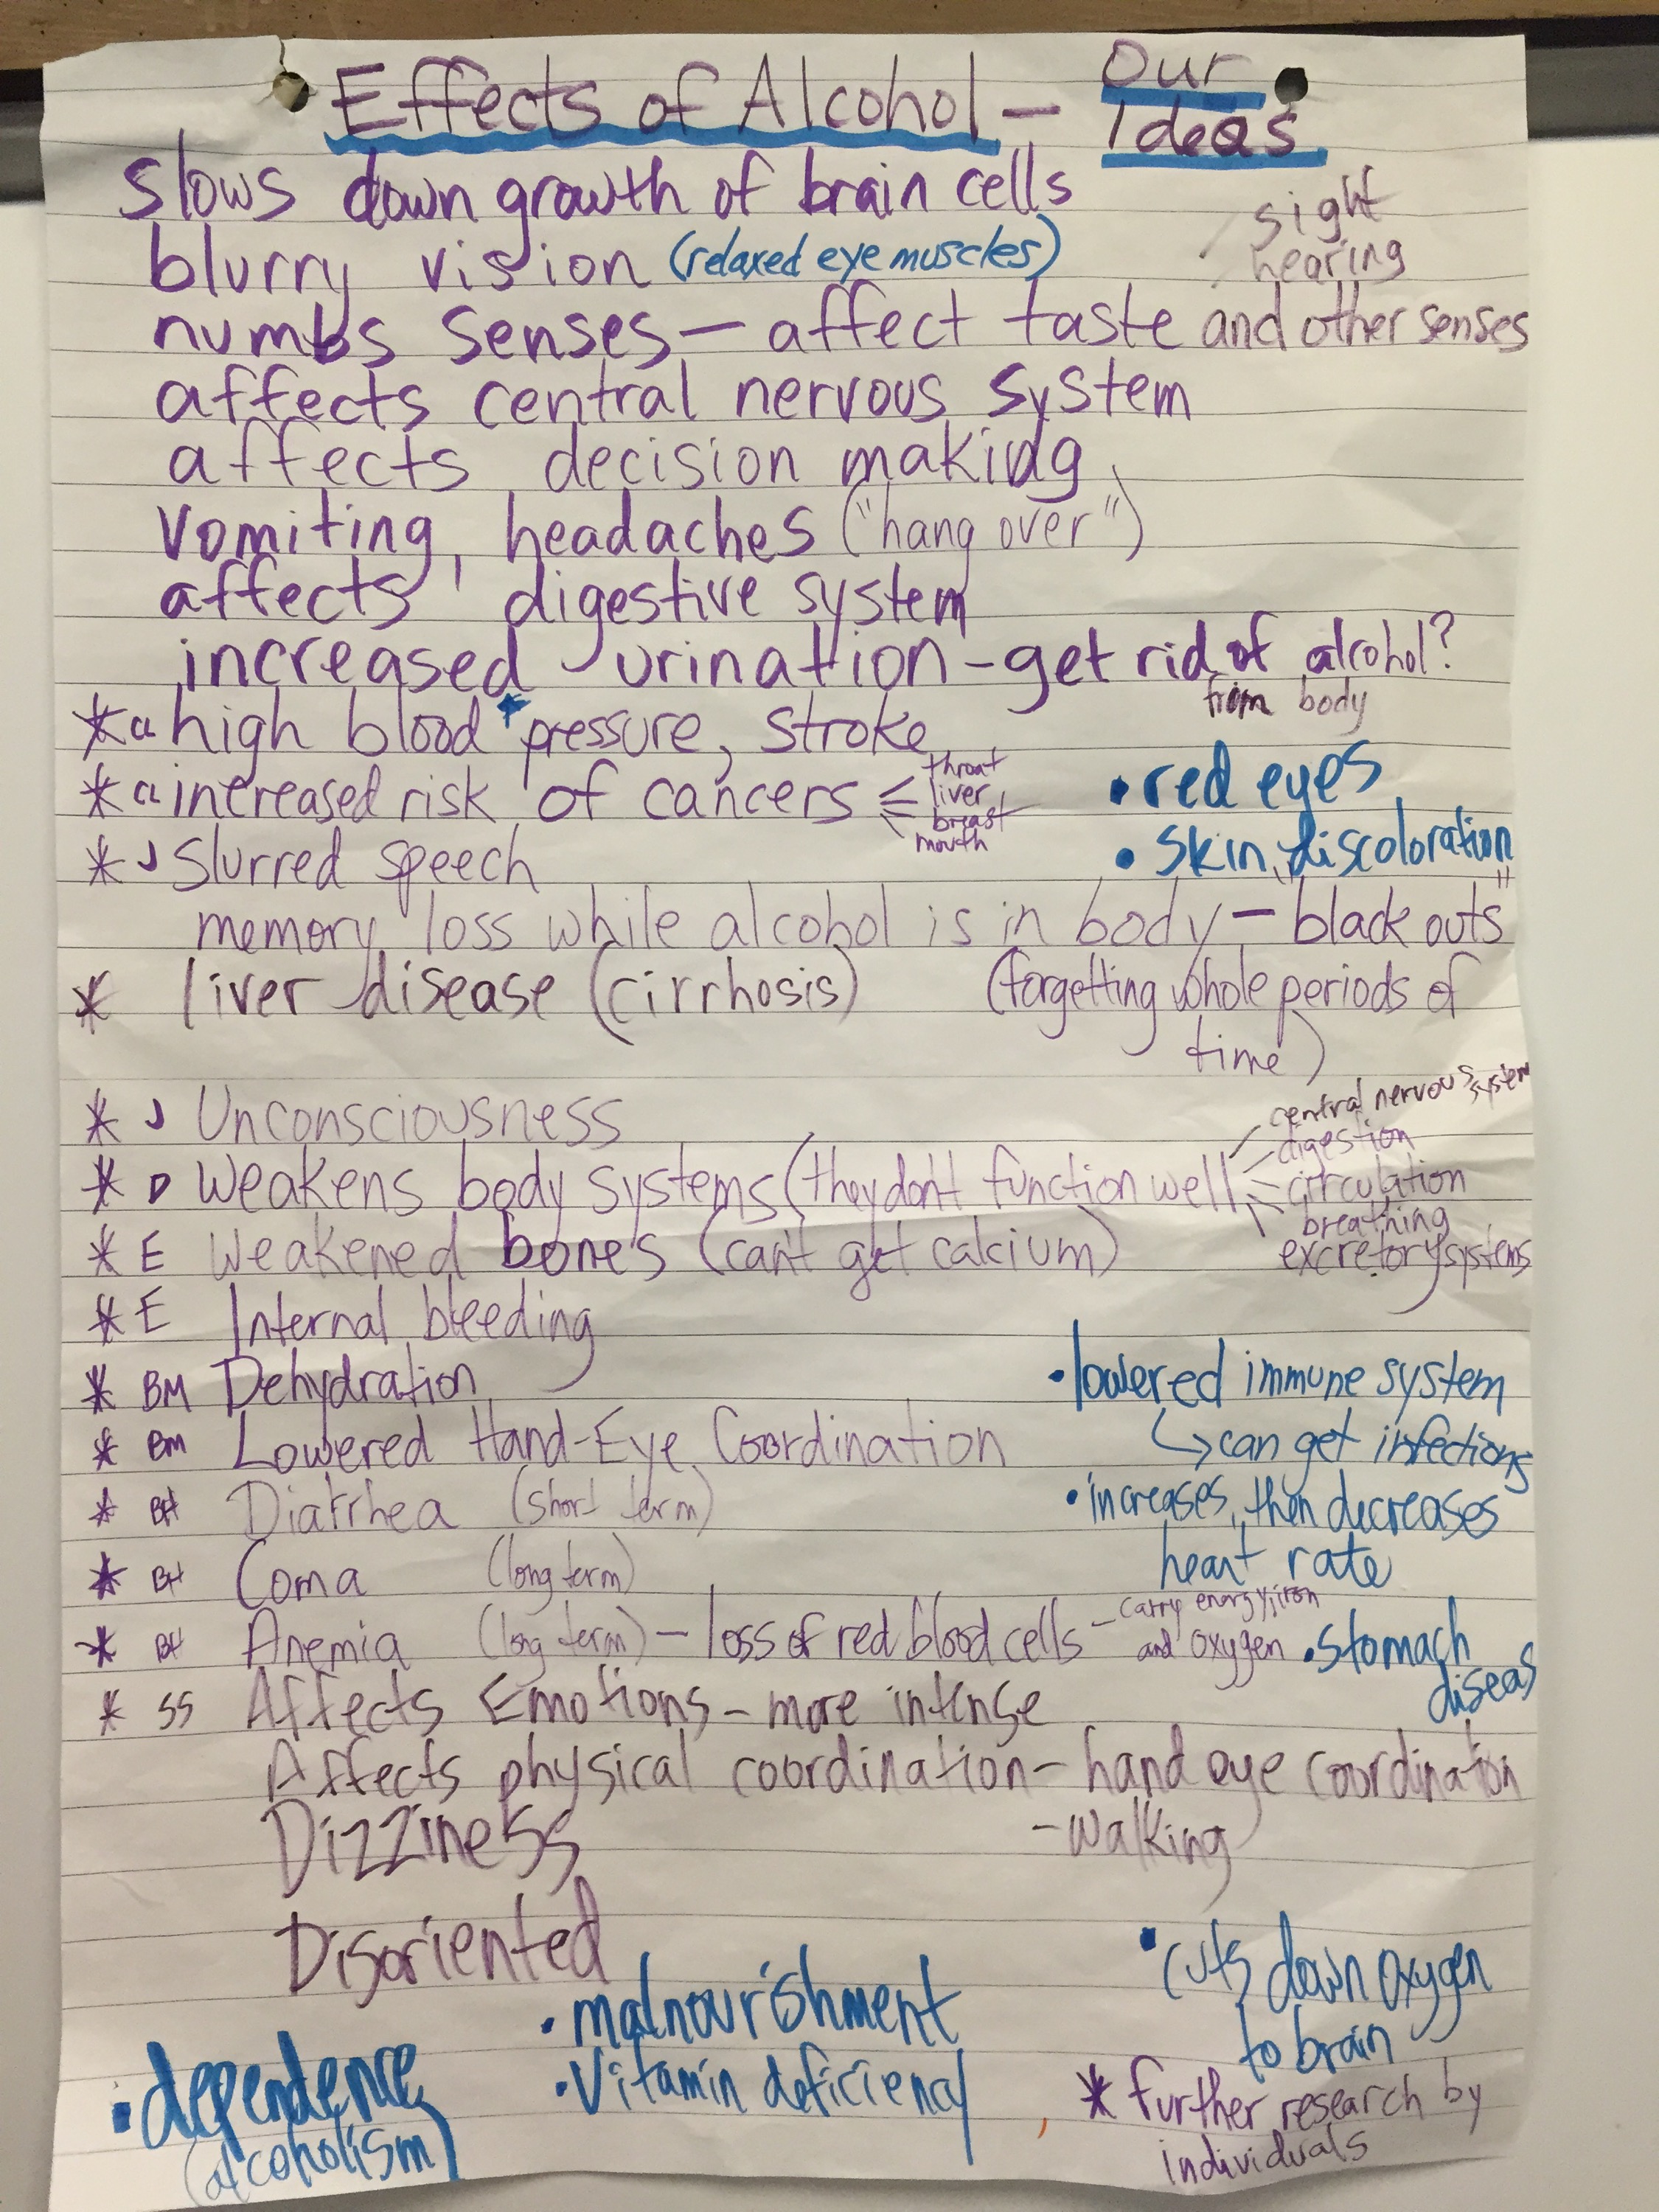 Effects of Alcohol – Our Ideas
slows down growth of brain cells
blurry vision (relaxed eye muscles)
sight
hearing
numbs senses – affect taste and other senses
affects central nervous system
affects decision making
vomiting, headaches ("hang over")
affects digestive system
increased urination – get rid of alcohol?
from body
* a high blood pressure, stroke
* a increased risk of cancers
throat
liver
breast
mouth
• red eyes
• skin discoloration
* J Slurred speech
memory loss while alcohol is in body – "black outs"
(forgetting whole periods of
time)
* liver disease (cirrhosis)
* J Unconsciousness
* D Weakens body systems (they don't function well
central nervous system
digestion
circulation
breathing
excretory systems
* E Weakened bones (can't get calcium)
* E Internal bleeding
* BM Dehydration
• lowered immune system
↳ can get infections
* BM Lowered Hand-Eye Coordination
* BH Diarrhea (short term)
• increases, then decreases
heart rate
* BH Coma (long term)
* BH Anemia (long term) – loss of red blood cells – carry energy, iron
and oxygen
• stomach
diseas
* SS Affects Emotions – more intense
Affects physical coordination – hand eye coordination
– walking
Dizziness
Disoriented
• malnourishment
• Vitamin deficiency
• cuts down oxygen
to brain
• dependence
(alcoholism)
* further research by
individuals